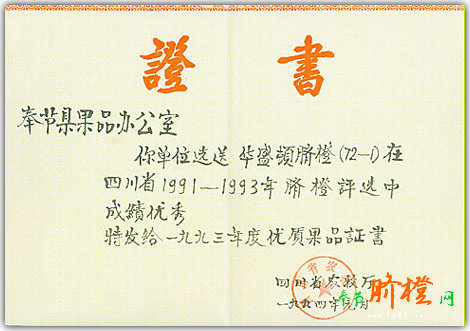 證書
奉节县果品办公室
你单位选送 华盛頓脐橙(72-1)在
四川省1991—1993年脐橙評选中
成績优秀
特发给一九九三年度优质果品証書
四川省农牧厅
一九九四年元月
奉节脐橙网